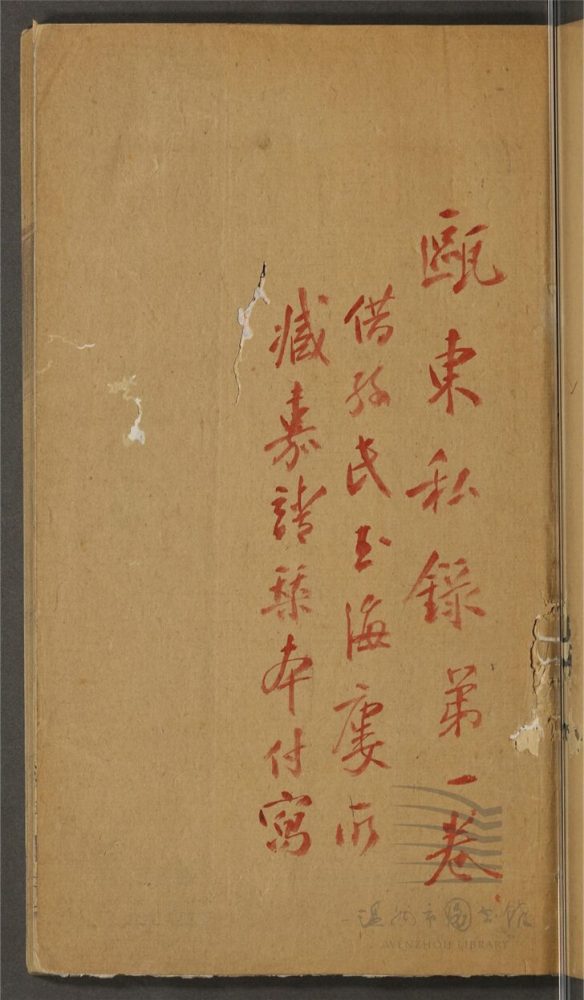 甌東私錄第一卷
借孫氏玉海廔所
藏嘉靖槧本付寫
温州市图书馆
WENZHOU LIBRARY